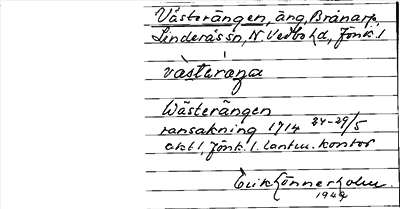 Västerängen, äng, Brånarp,
Linderås sn, N Vedbo hd, Jönk. l
västäräŋa
Wästerängen
ransakning 1714 24-29/5
akt 1, Jönk. l. lantm. kontor
Erik Lönnerholm
1949